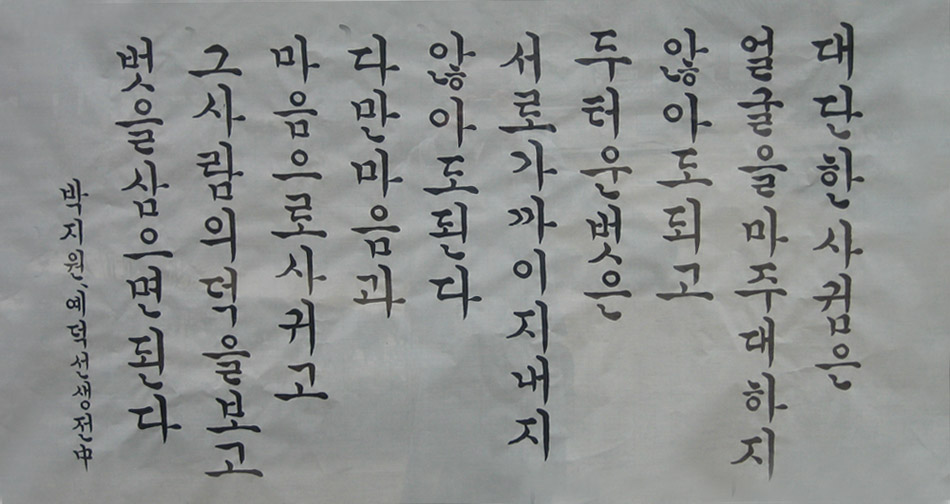 대단한사귐은
얼굴을마주대하지
않아도되고
두터운벗은
서로가까이지내지
않아도된다
다만마음과
마음으로사귀고
그사람의덕을보고
벗을삼으면된다
박지원, 예덕선생전中